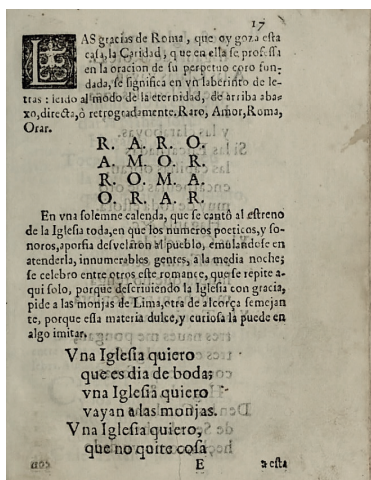 17
LAS gracias de Roma, que oy goza esta
casa, la Caridad, que en ella se professa
en la oracion de su perpetuo coro fun-
dada, se significa en vn laberinto de le-
tras: leido al modo de la eternidad, de arriba aba-
xo, directa, ò retrogradamente. Raro, Amor, Roma,
Orar.
R. A. R. O.
A. M. O. R.
R. O. M. A.
O. R. A. R.
En vna solemne calenda, que se cantò al estreno
de la Iglesia toda, en que los numeros poeticos, y so-
noros, aporfia desvelaron al pueblo, emulandose en
atenderla, innumerables gentes, a la media noche;
se celebro entre otros este romance, que se repite a-
qui solo, porque descriuiendo la Iglesia con gracia,
pide a las monjas de Lima, otra de alcorça semejan
te, porque essa materia dulce, y curiosa la puede en
algo imitar.
Vna Iglesia quiero
que es dia de boda;
vna Iglesia quiero
vayan a las monjas.
Vna Iglesia quiero,
que no quite cosa
E
a esta